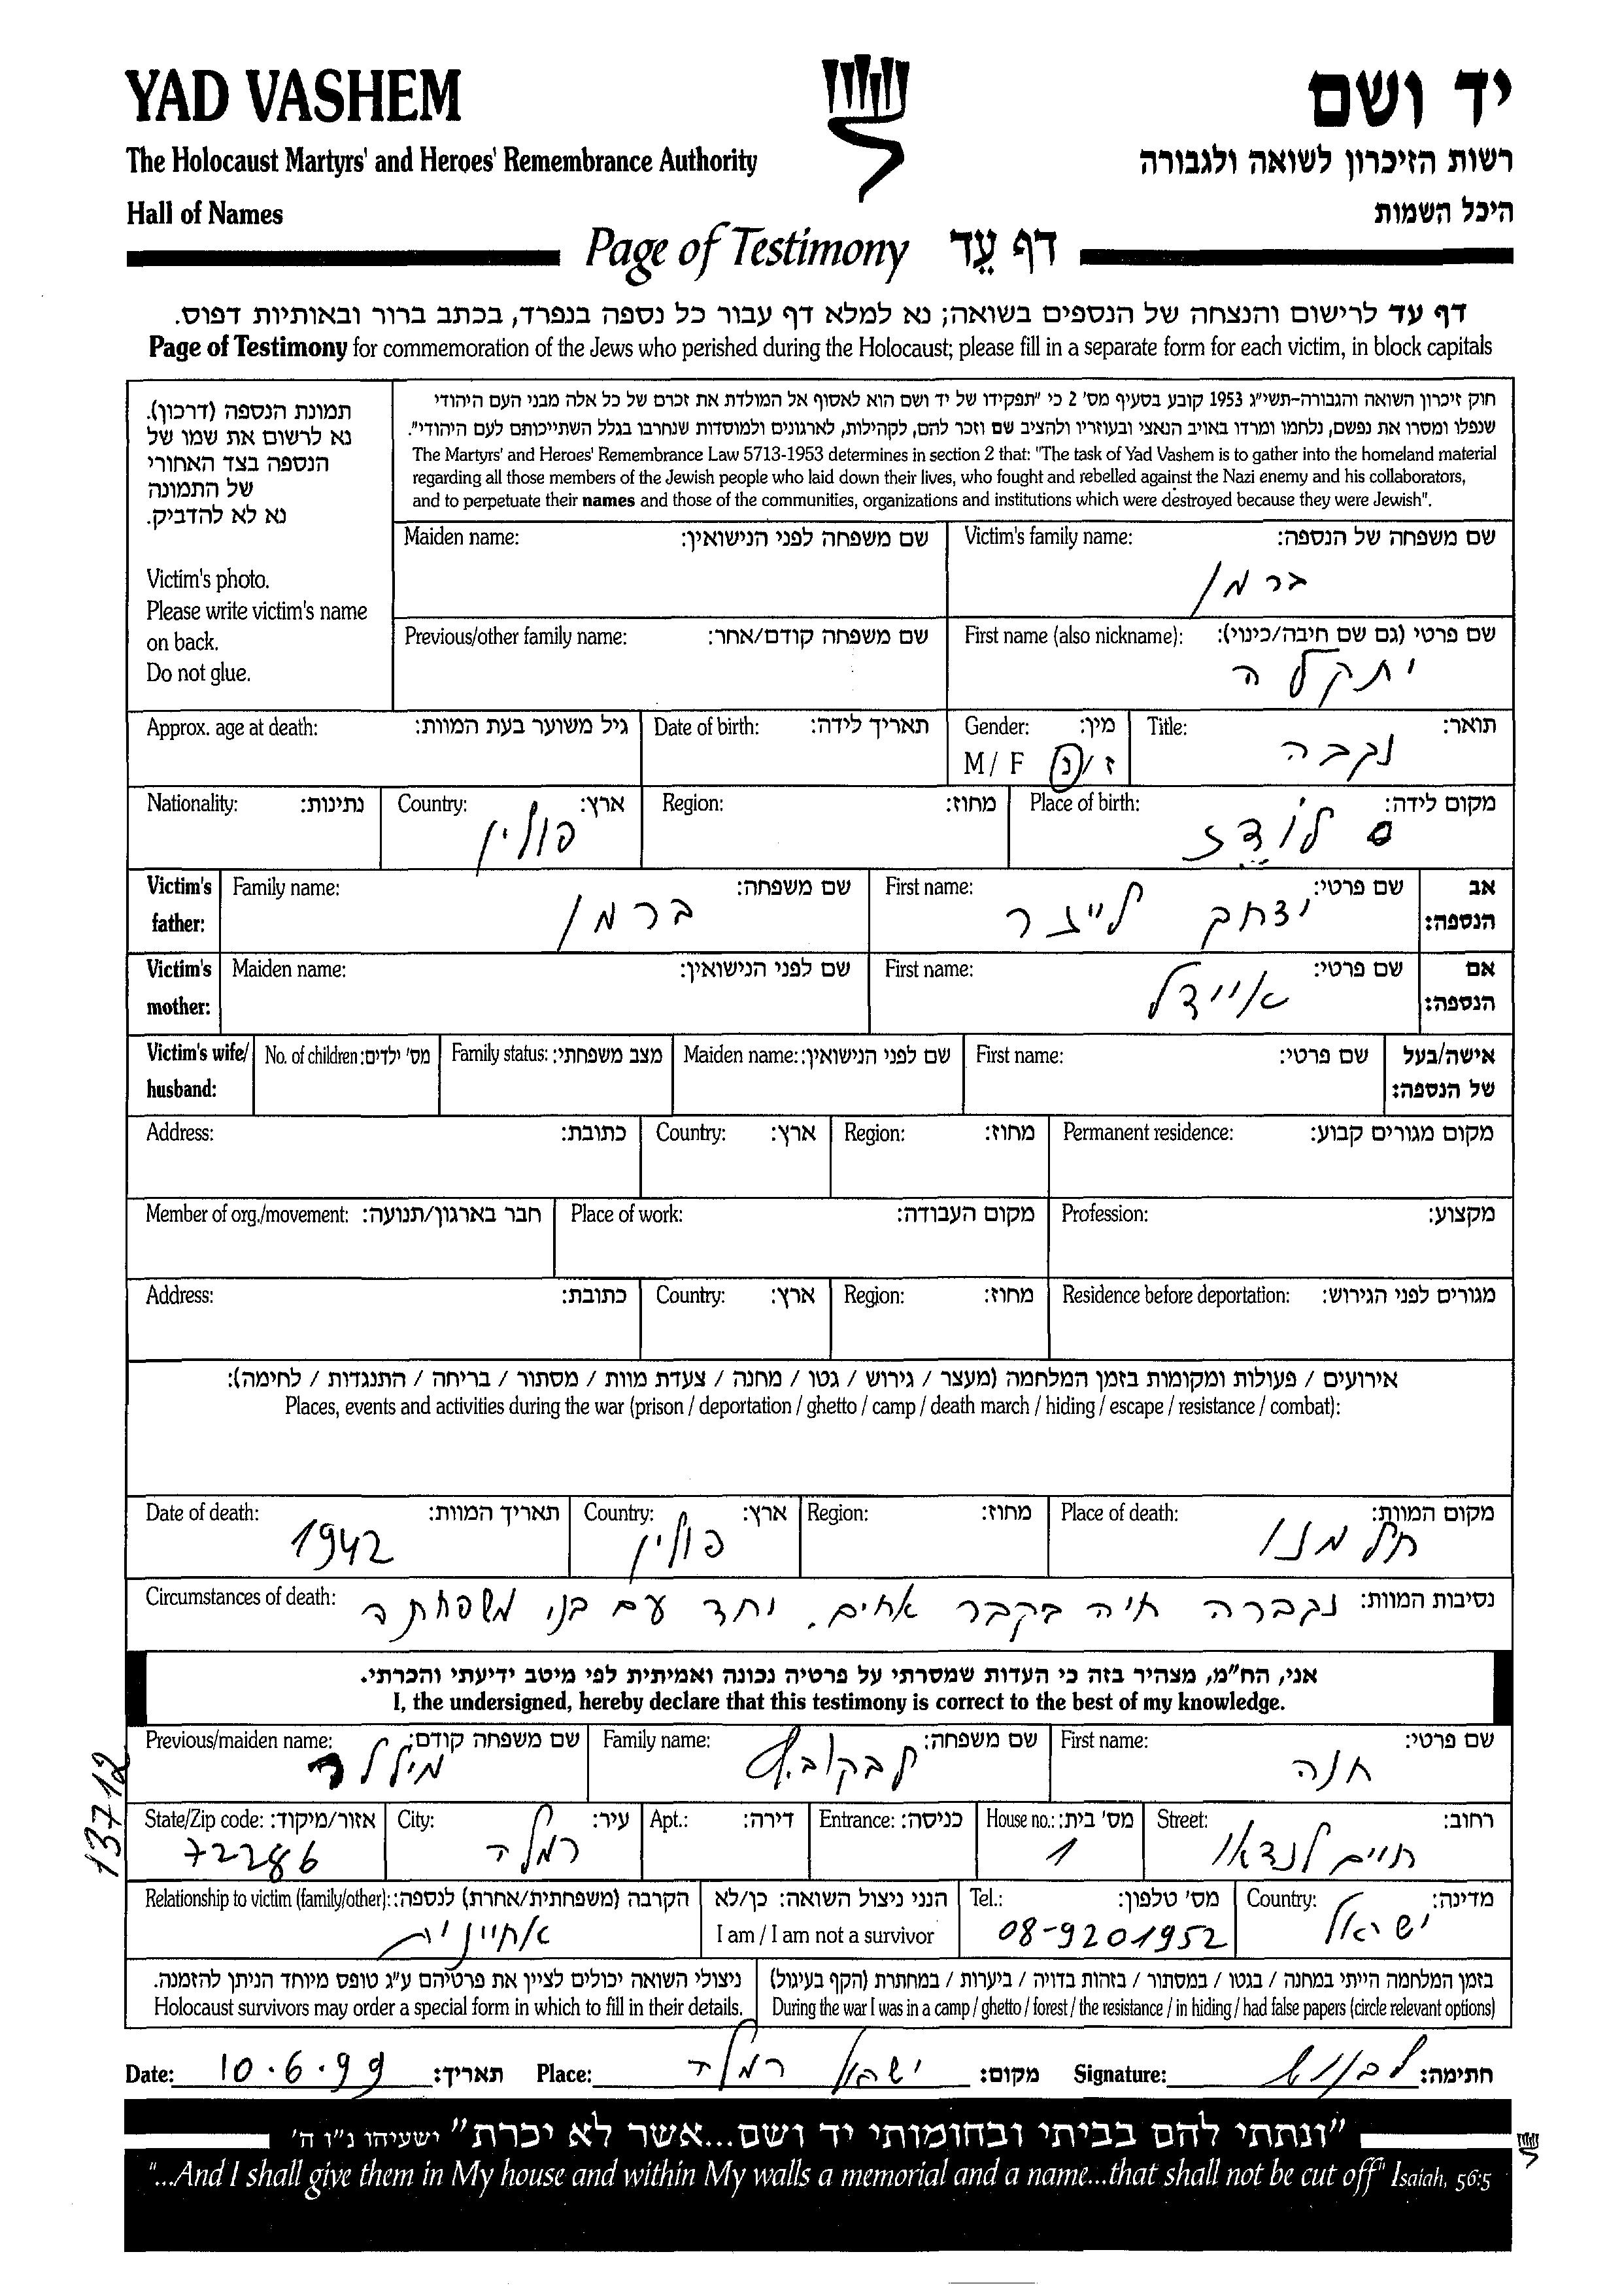 YAD VASHEM
יד ושם
The Holocaust Martyrs' and Heroes' Remembrance Authority
רשות הזיכרון לשואה ולגבורה
Hall of Names
היכל השמות
Page of Testimony דף עֵד
דף עד לרישום והנצחה של הנספים בשואה; נא למלא דף עבור כל נספה בנפרד, בכתב ברור ובאותיות דפוס.
Page of Testimony for commemoration of the Jews who perished during the Holocaust; please fill in a separate form for each victim, in block capitals
תמונת הנספה (דרכון).
נא לרשום את שמו של
הנספה בצד האחורי
של התמונה
נא לא להדביק.
Victim's photo.
Please write victim's name
on back.
Do not glue.
חוק זיכרון השואה והגבורה-תשי"ג 1953 קובע בסעיף מס' 2 כי "תפקידו של יד ושם הוא לאסוף אל המולדת את זכרם של כל אלה מבני העם היהודי
שנפלו ומסרו את נפשם, נלחמו ומרדו באויב הנאצי ובעוזריו ולהציב שם וזכר להם, לקהילות, לארגונים ולמוסדות שנחרבו בגלל השתייכותם לעם היהודי".
The Martyrs' and Heroes' Remembrance Law 5713-1953 determines in section 2 that: "The task of Yad Vashem is to gather into the homeland material
regarding all those members of the Jewish people who laid down their lives, who fought and rebelled against the Nazi enemy and his collaborators,
and to perpetuate their names and those of the communities, organizations and institutions which were destroyed because they were Jewish".
Victim's family name: שם משפחה של הנספה:
ברמן
Maiden name: שם משפחה לפני הנישואין:
First name (also nickname): שם פרטי (גם שם חיבה/כינוי):
יתקלה
Previous/other family name: שם משפחה קודם/אחר:
Title: תואר:
נקבה
Gender: מין:
M / F ז / נ
Date of birth: תאריך לידה:
Approx. age at death: גיל משוער בעת המוות:
Place of birth: מקום לידה:
לודז
Region: מחוז:
Country: ארץ:
פולין
Nationality: נתינות:
אב הנספה:
First name: שם פרטי:
יצחק לייזר
Family name: שם משפחה:
ברמן
Victim's father:
אם הנספה:
First name: שם פרטי:
איידל
Maiden name: שם לפני הנישואין:
Victim's mother:
אישה/בעל של הנספה:
First name: שם פרטי:
Maiden name: שם לפני הנישואין:
Family status: מצב משפחתי:
No. of children: מס' ילדים:
Victim's wife/ husband:
Permanent residence: מקום מגורים קבוע:
Region: מחוז:
Country: ארץ:
Address: כתובת:
Profession: מקצוע:
Place of work: מקום העבודה:
Member of org./movement: חבר בארגון/תנועה:
Residence before deportation: מגורים לפני הגירוש:
Region: מחוז:
Country: ארץ:
Address: כתובת:
אירועים / פעולות ומקומות בזמן המלחמה (מעצר / גירוש / גטו / מחנה / צעדת מוות / מסתור / בריחה / התנגדות / לחימה):
Places, events and activities during the war (prison / deportation / ghetto / camp / death march / hiding / escape / resistance / combat):
Place of death: מקום המוות:
חלמנו
Region: מחוז:
Country: ארץ:
פולין
Date of death: תאריך המוות:
1942
Circumstances of death: נסיבות המוות: נקברה חיה בקבר אחים. יחד עם בני משפחתה
אני, הח"מ, מצהיר בזה כי העדות שמסרתי על פרטיה נכונה ואמיתית לפי מיטב ידיעתי והכרתי.
I, the undersigned, hereby declare that this testimony is correct to the best of my knowledge.
First name: שם פרטי:
חנה
Family name: שם משפחה:
Previous/maiden name: שם משפחה קודם:
מילר
13712
Street: רחוב:
חיים לנדאו
House no.: מס' בית:
1
Entrance: כניסה:
Apt.: דירה:
City: עיר:
רמלה
State/Zip code: אזור/מיקוד:
72286
Country: מדינה:
ישראל
Tel.: מס' טלפון:
08-9201952
הנני ניצול השואה: כן/לא
I am / I am not a survivor
Relationship to victim (family/other): הקרבה (משפחתית/אחרת) לנספה:
אחיינית
בזמן המלחמה הייתי במחנה / בגטו / במסתור / בזהות בדויה / ביערות / במחתרת (הקף בעיגול)
During the war I was in a camp / ghetto / forest / the resistance / in hiding / had false papers (circle relevant options)
ניצולי השואה יכולים לציין את פרטיהם ע"ג טופס מיוחד הניתן להזמנה.
Holocaust survivors may order a special form in which to fill in their details.
Date: 10.6.99 תאריך: Place: ישראל רמלה מקום: Signature: חתימה:
"ונתתי להם בביתי ובחומותי יד ושם...אשר לא יכרת" ישעיהו נ"ו ה'
"...And I shall give them in My house and within My walls a memorial and a name...that shall not be cut off" Isaiah, 56:5